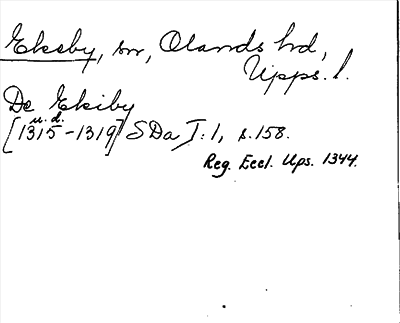 Eksby, sn, Olands hd,
Upps. l.
De Ekiby
u. d.
[1315-1319] SDa I:1, s.158.
Reg. Eccl. Ups. 1344.